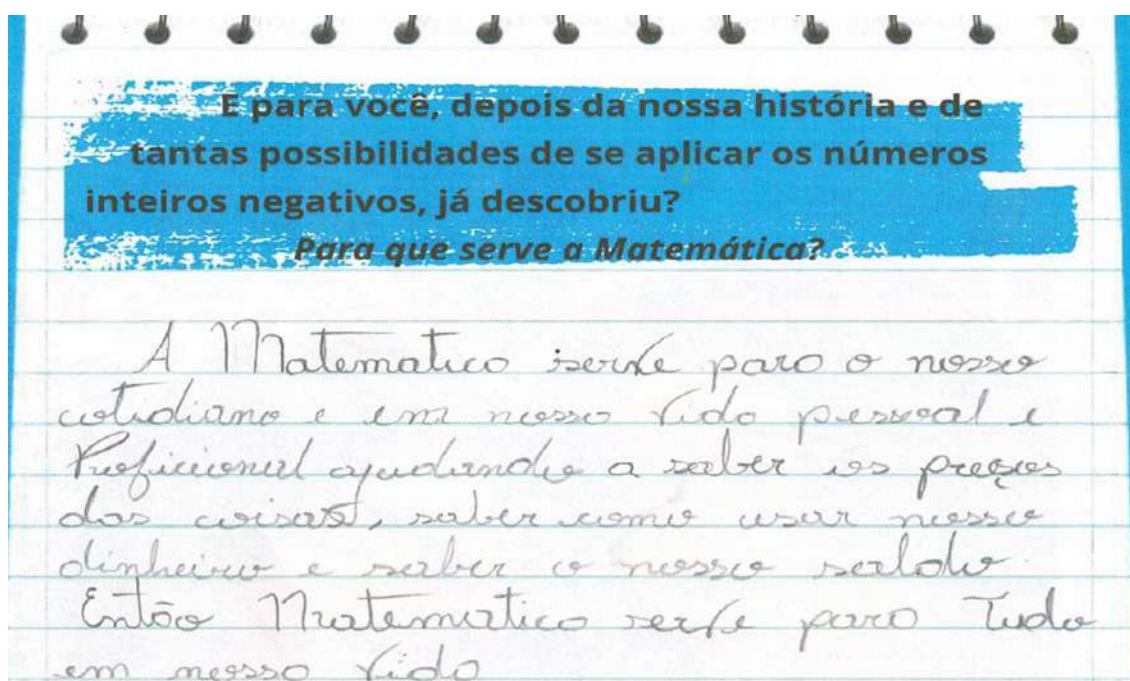 E para você, depois da nossa história e de
tantas possibilidades de se aplicar os números
inteiros negativos, já descobriu?
Para que serve a Matemática?
A Matematica serve para o nosso
cotidiano e em nossa vida pessoal e
Proficional ajudando a saber os preços
das coisas, saber como usar nosso
dinheiro e saber o nosso saldo.
Então Matematica serve para Tudo
em nossa vida